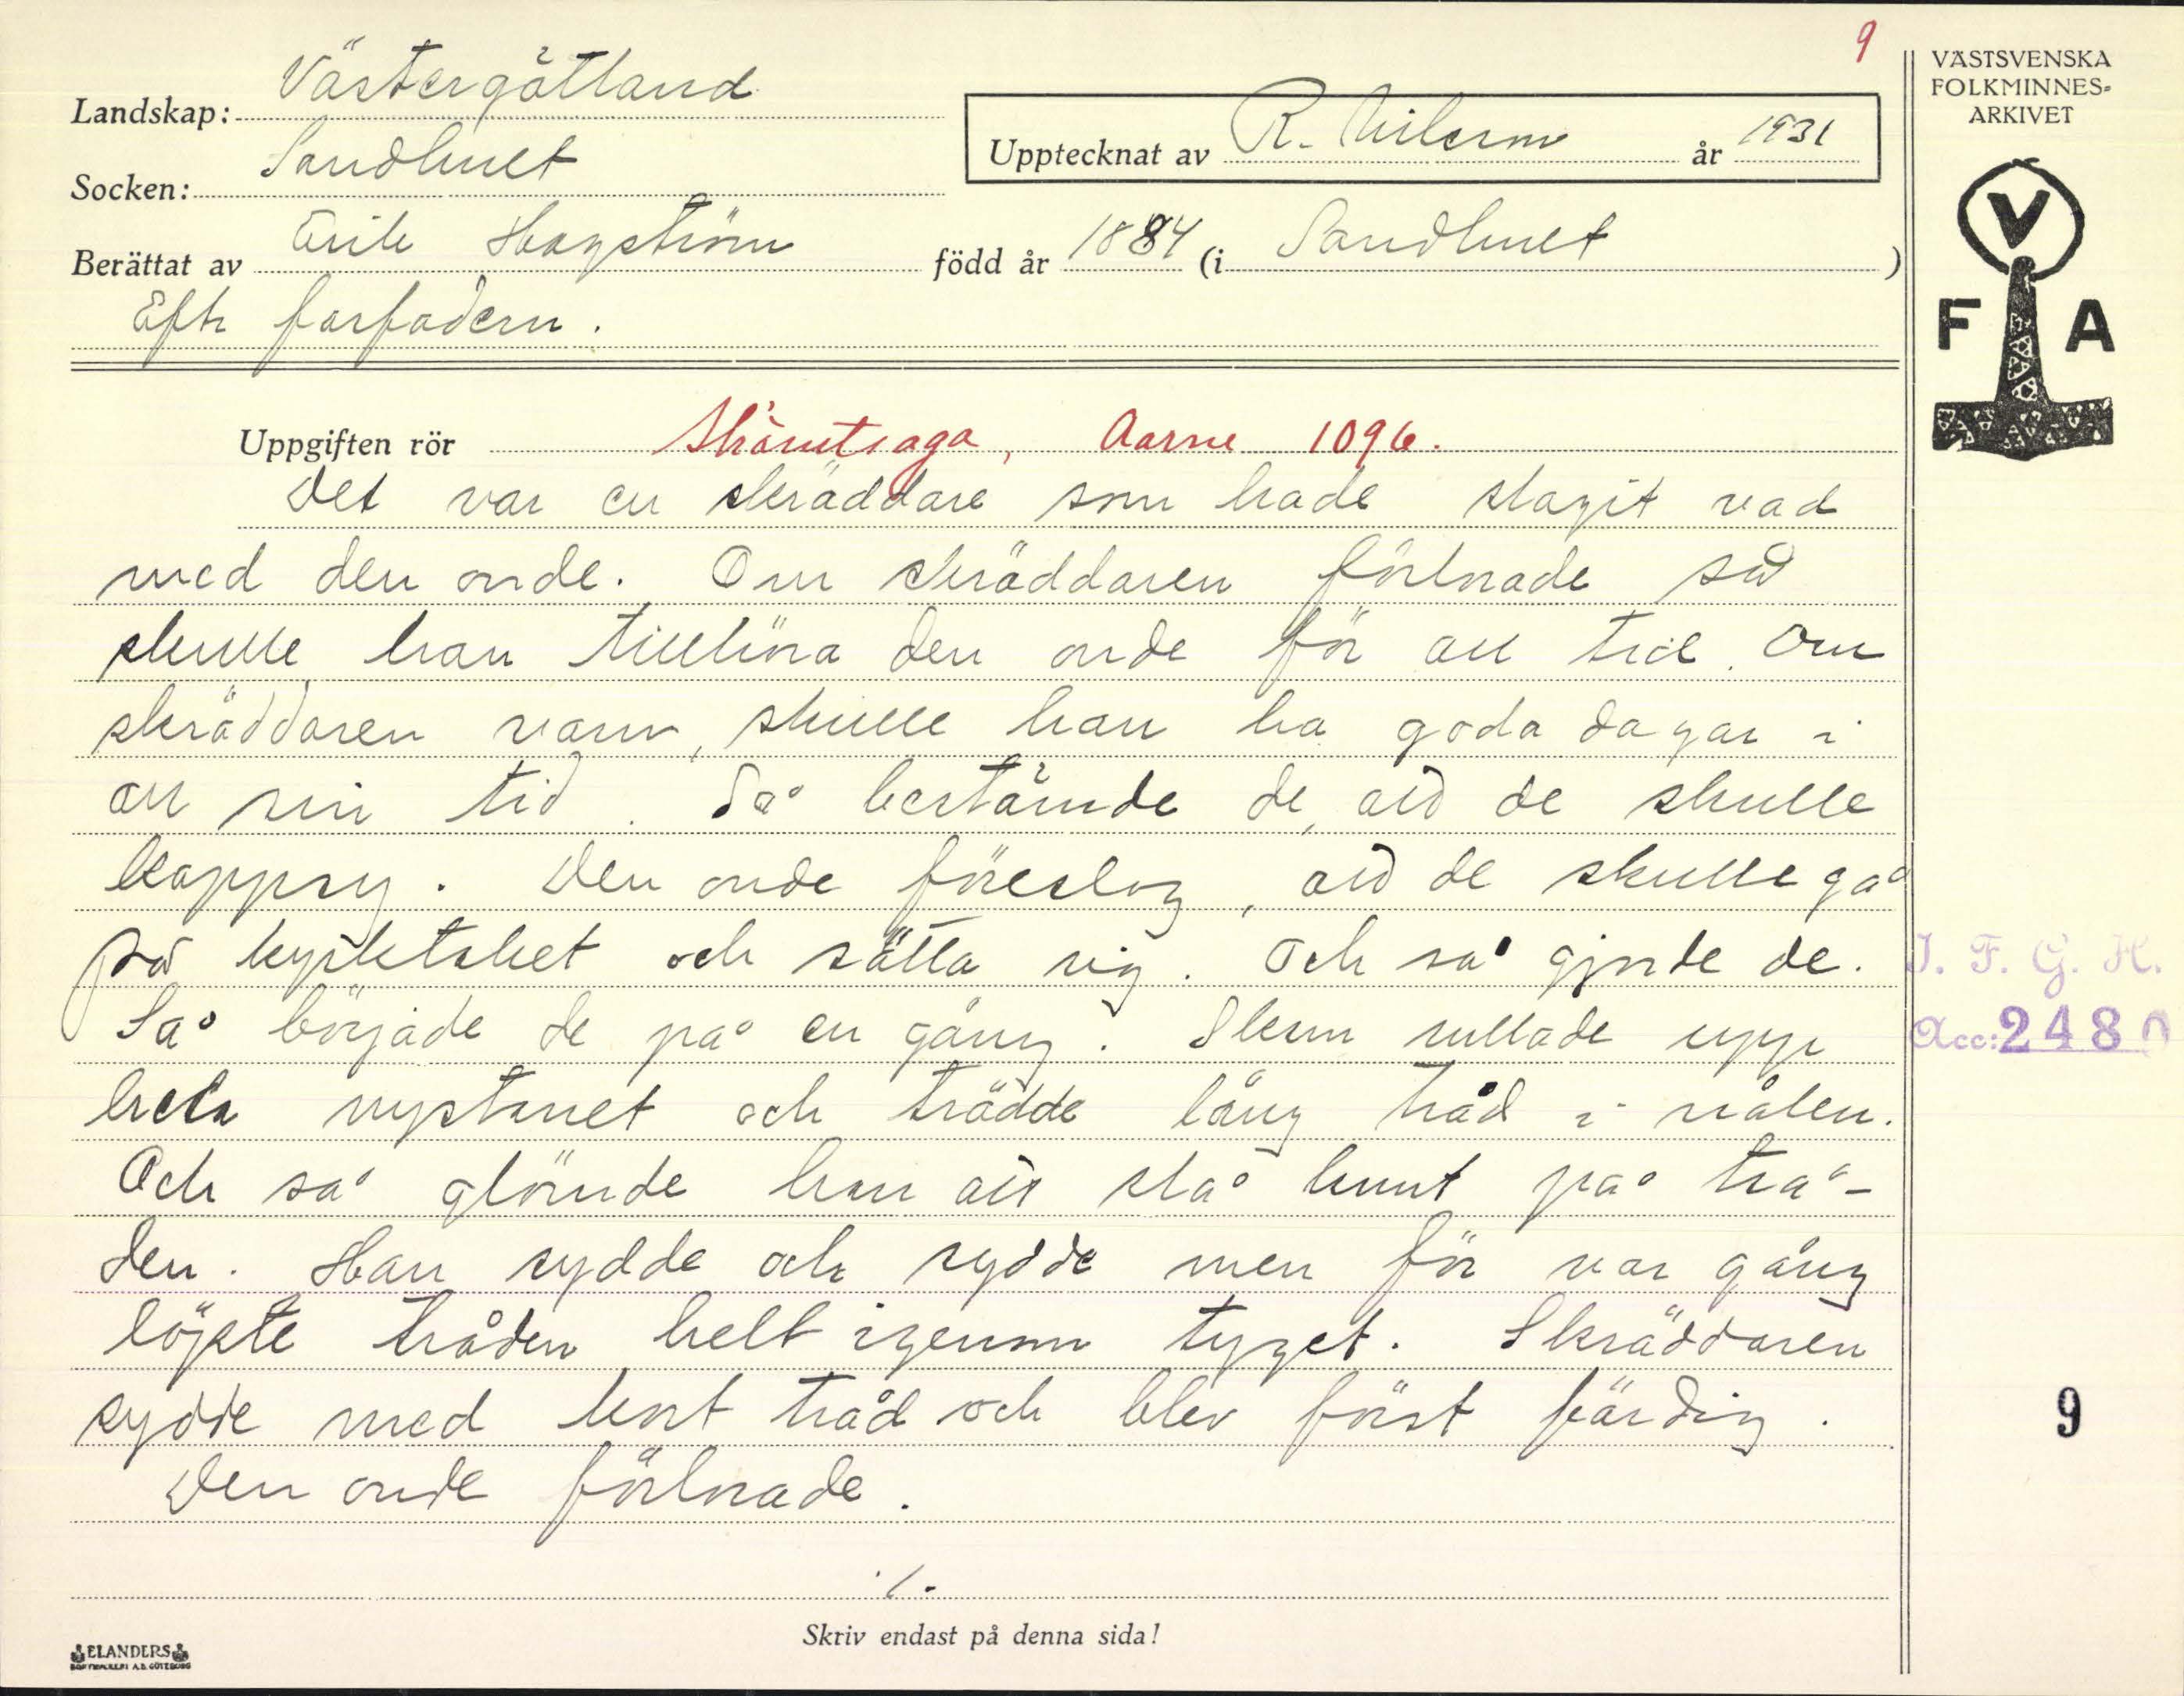 9
VÄSTSVENSKA
FOLKMINNES-
ARKIVET
Landskap: Västergötland
Socken: Sandhult
Upptecknat av R. Nilsson år 1931
Berättat av Erik Hagström född år 1884 (i Sandhult)
Eftr farfadern.
V
F A
Uppgiften rör Skämtsaga, Aarne 1096.
Det var en skräddare som hade slagit vad
med den onde. Om skräddaren förlorade så
skulle han tillhöra den onde för all tid. Om
skräddaren vann, skulle han ha goda dagar i
all sin tid. Så bestämde de, att de skulle
kappsy. Den onde föreslog, att de skulle gå
på kyrktaket och sätta sig. Och så gjorde de.
Så började de på en gång. Skam rullade upp
hela nystanet och trädde lång tråd i nålen.
Och så glömde han att slå knut på trå-
den. Han sydde och sydde men för var gång
löpte tråden helt igenom tyget. Skräddaren
sydde med kort tråd och blev först färdig.
Den onde förlorade.
./.
I. F. G. H.
Acc: 2480
9
Skriv endast på denna sida!
ELANDERS
BOKTRYCKERI A.B. GÖTEBORG